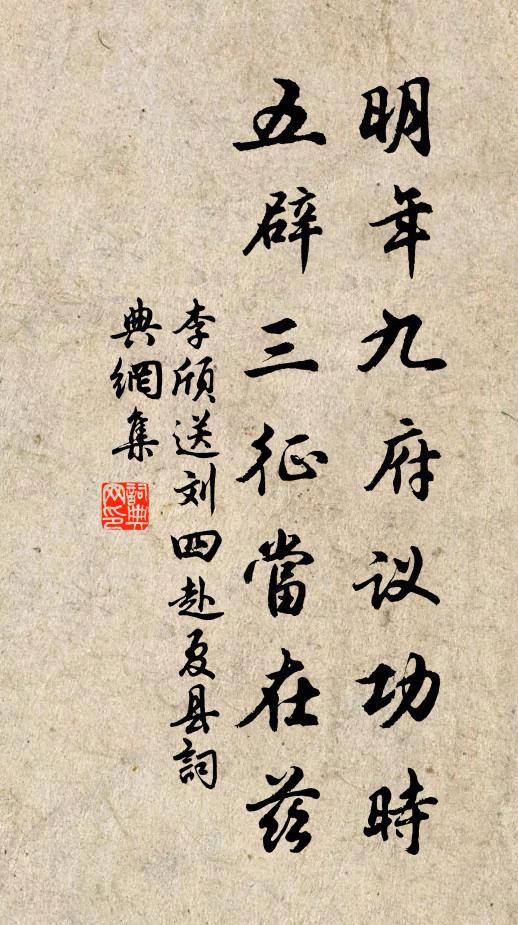 明年九府议功時
五辟三征當在茲
李頎送刘四赴夏县詞
典網集
詞典网印